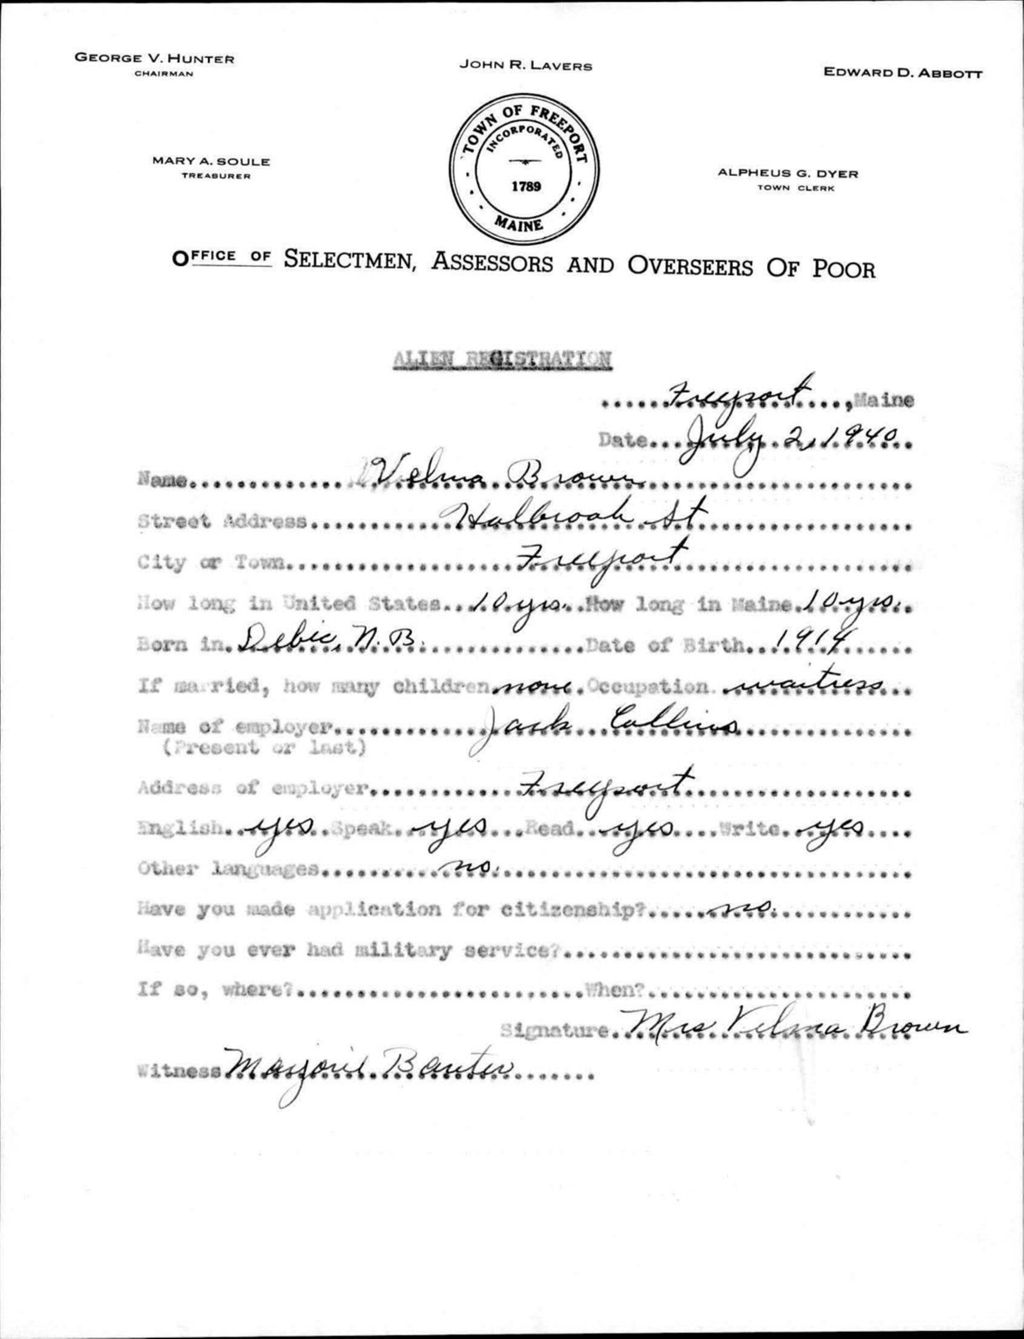 GEORGE V. HUNTER
CHAIRMAN
JOHN R. LAVERS
EDWARD D. ABBOTT
MARY A. SOULE
TREASURER
TOWN OF FREEPORT
INCORPORATED
1789
MAINE
ALPHEUS G. DYER
TOWN CLERK
OFFICE OF SELECTMEN, ASSESSORS AND OVERSEERS OF POOR
ALIEN REGISTRATION
Freeport, Maine
Date July 2, 1940
Name Velma Brown
Street Address Holbrook St
City or Town Freeport
How long in United States 10 yrs. How long in Maine 10 yrs.
Born in Debic, N.B. Date of Birth 1914
If married, how many children none Occupation waitress
Name of employer Jack Collins
(Present or last)
Address of employer Freeport
English yes Speak yes Read yes Write yes
Other languages no.
Have you made application for citizenship? no.
Have you ever had military service?
If so, where? When?
Signature Mrs Velma Brown
Witness Marjorie